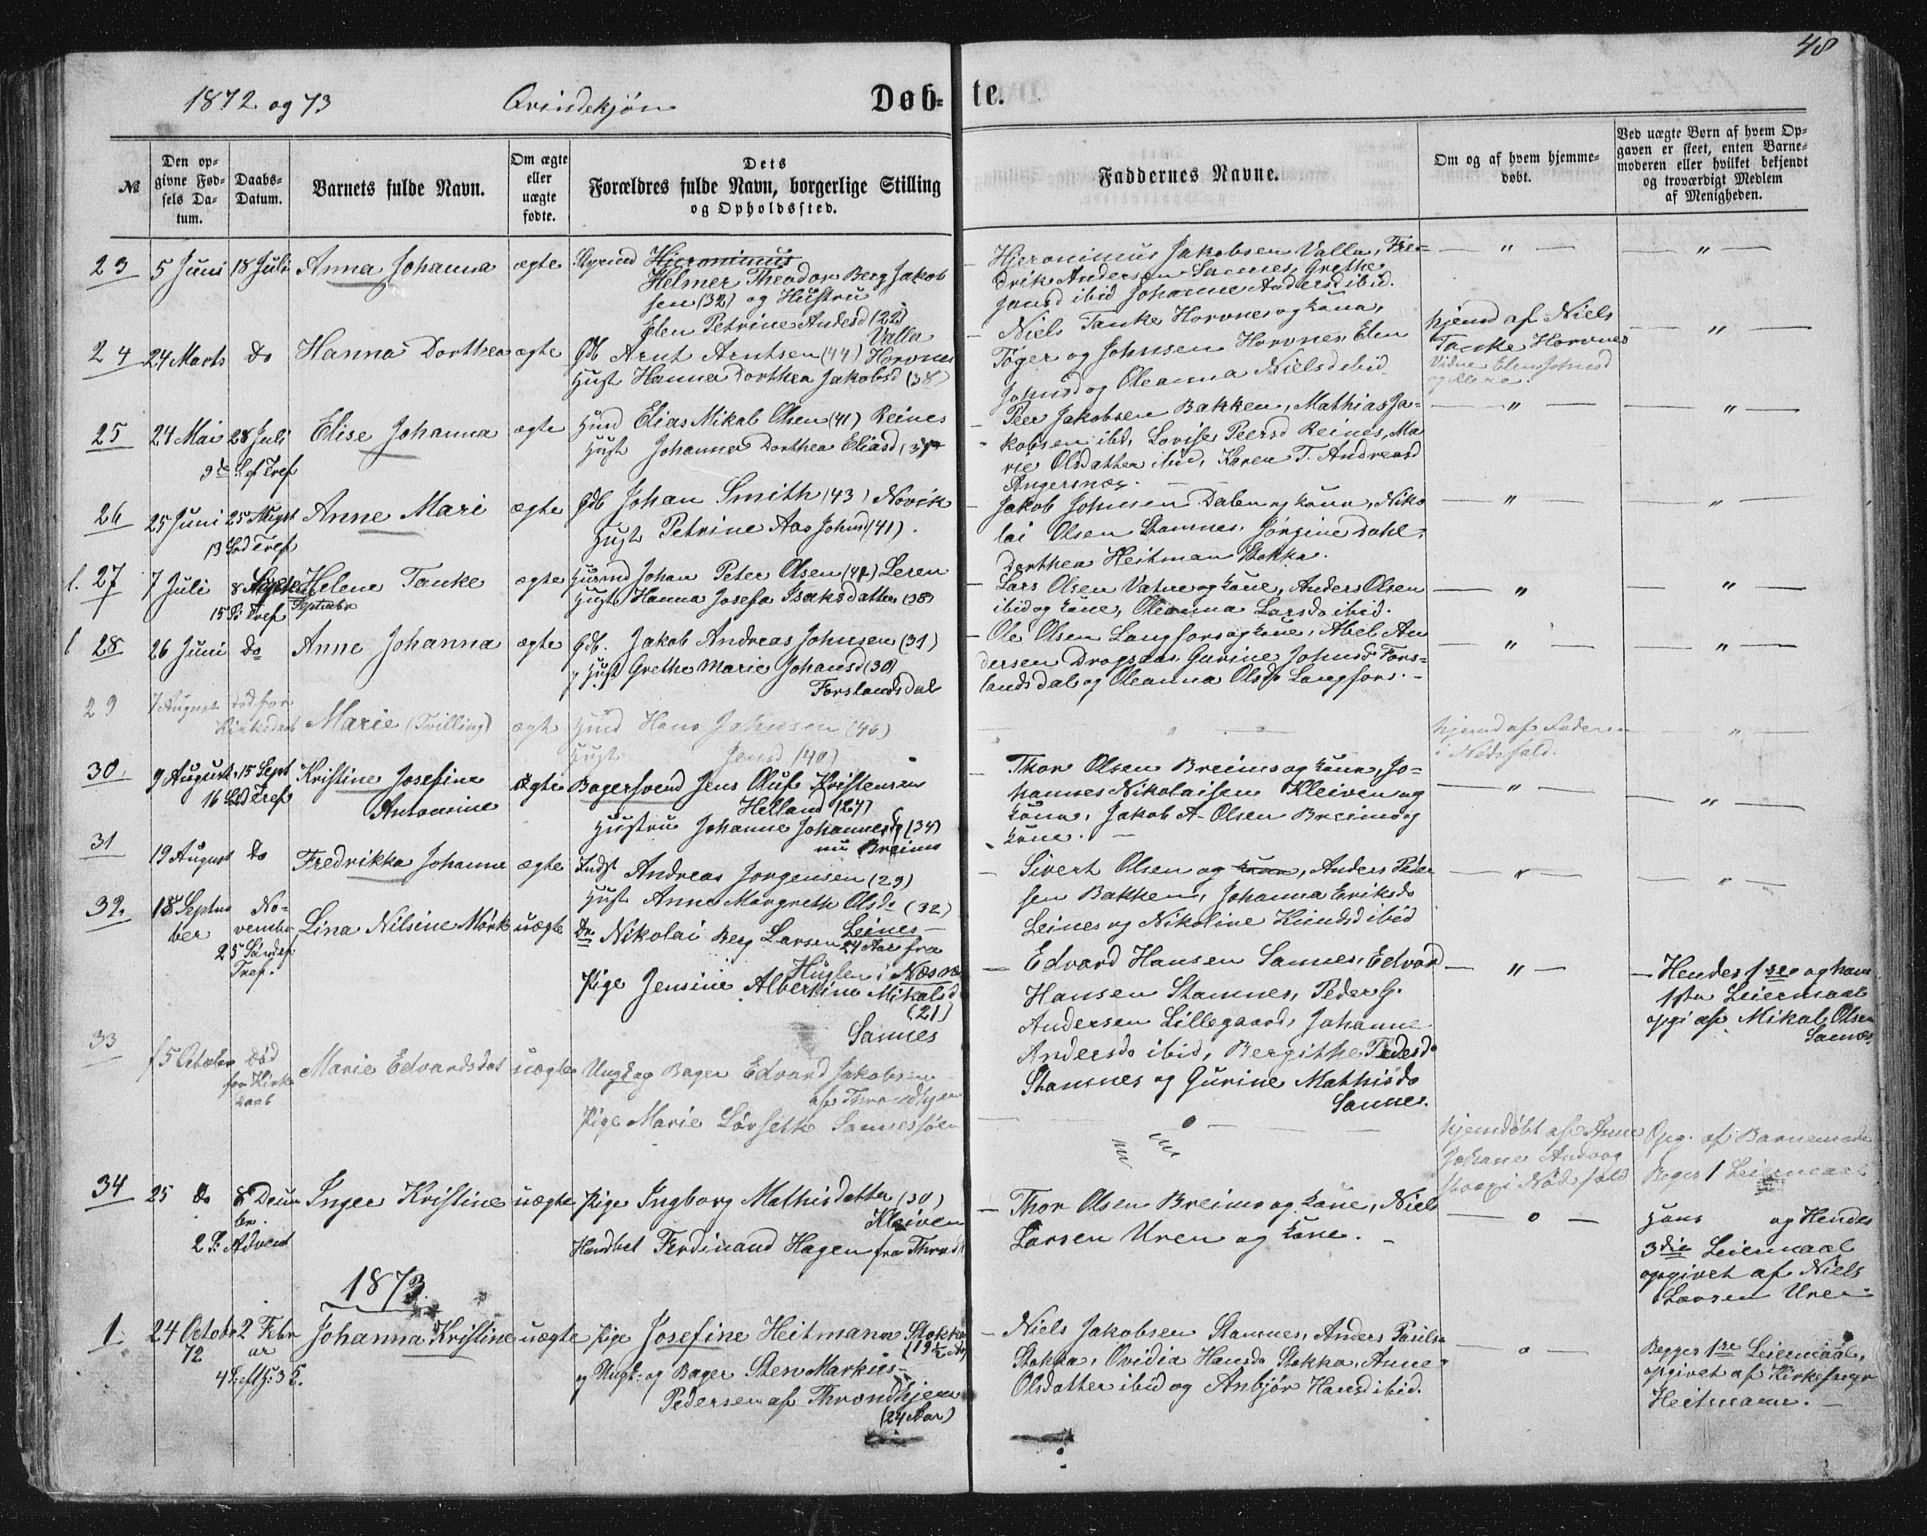 48
1872 og 73 Qvindekjøn Døb- te.
№
Den op-
givne Fød-
sels Da-
tum.
Daabs-
Datum.
Barnets fulde Navn.
Om ægte
eller
uægte
fødte.
Dets
Forældres fulde Navn, borgerlige Stilling
og Opholdssted.
Faddernes Navne.
Om og af hvem hjemme-
døbt.
Ved uægte Børn af hvem Op-
gaven er skeet, enten Barne-
moderen eller hvilket bekjendt
og troværdigt Medlem
af Menigheden.
23 5 Juni 18 Juli Anna Johanna ægte Hieronimus
Helmer Theodor Berg Jakob
sen (32) og Hustru
Elen Petrine Andersd (22)
Valla
Hjeronimus Jakobsen Valla, Fre-
drik Andersen Sannes, Grethe
Jansd ibid Johanne Andersd ibid.
— " — — " —
24 24 Marts do Hanna Dorthea ægte Gdb Arnt Arntsen (44) Horvnes
Hust Hanna Dorthea Jakobsd (38)
— Niels Tanke Horvnes og Kone,
Tøger og Johnsen Horvnes Elen
Johnsd og Oleanna Nielsd ibid.
hjemd af Niels
Tanke Horvnes
Vidne Elen Johnsd
og Mere.
— " —
25 24 Mai 28 Juli Elise Johanna ægte Husm Elias Mikal Olsen (41) Reines
9de S. ef Tref Hust Johanna Dorthea Eliasd
— Peer Jakobsen Bakken, Mathias Ja-
kobsen ibd, Lovise Peersd Reines, Ma-
rie Olsdatter ibid, Karen T. Andreasd
Angersnæs.
— " — — " —
26 25 Juni 25 August Anne Mari ægte Gdb Johan Smith (43) Novik
13 Sød Tref Hust Petrine Aas Johnsd (41).
Jakob Johnsen Dalen og Kone, Niko
lai Olsen Stamnes, Jørgine Dahl,
Dorthea Heitman Stokka.
— " — — " —
l. 27 7 Juli 8 Septe Helene Tanke ægte Husmd Johan Peter Olsen (42) Leren
15 S: Tref September Hust Hanna Josefa Isaksdatter (38)
— Lars Olsen Vatne og Kone, Anders Olsen
ibid og Kone, Oleanna Larsd ibid.
— " — — " —
l 28 26 Juni do Anne Johanna ægte Gdb. Jakob Andreas Johnsen (31)
Hust Grethe Marie Johansd (30)
Forslandsdal
— Ole Olsen Langfors og Kone, Abel An
dersen Dragsaas, Gurine Johnsd Fors-
landsdal og Oleanna Olsd Langfors. —
— " — — " —
29 7 August død for
Kirkedaab Marie (Tvilling) ægte Husmd Hans Johnsen (46)
Hust Jensd (40)
— " —
hjemd af Faderen
i Nødsfald.
— " —
30. 9 August 15 Sept Kristine Josefine
16 Sød Tref Antonine
ægte Bagersvend Jens Oluf Kristensen
Helland (24)
Hustru Johanne Johannesd (34)
nu Breims
— Thor Olsen Breims og Kone, Jo-
hannes Nikolaisen Kleiven og
Kone, Jakob A. Olsen Breims og
Kone. —
— " — — " —
31 19 August do Fredrikka Johanna ægte Indst Andreas Jorgensen (29)
Hust Anna Margreth Olsd (32)
Leines —
— Sivert Olsen og Kone, Anders Peder
sen Bakken, Johanna Eriksd
Leines og Nikoline Knudsd ibid
— " — — " —
32. 18 Septem
ber
No-
vember
25 Søndef
Tref.
Lina Nilsine Mørk uægte Dr. Nikolai Berg Larsen 24 Aar fra
Huglen i Næsne
Pige Jensine Albertine Mikalsd
(21)
Sannes
— Edvard Hansen Sannes, Edvard
Hansen Stamnes, Peder G.
Andersen Lillegaard, Johanne
Andersd ibid, Bergithe Pedersd
Stamnes og Gurine Mathisd
Sannes.
— " —
— Hendes 1ste og hans
1ste Leiermaal
opgi af Mikal Olsen
Sannes
33 15 October død
for Kirke
daab
Marie Edvardsdat uægte Ungk og Bager Edvard Jakobsen
af Throndhjem
Pige Marie Løvseth Sannessøen
hjemdøbt af Anne
Johane
i Nødsfald
Opg. af Barnemoder
Beges 1 Leiermaal
34 25 do 8 Decem
ber.
2 S. Advent
Inger Kristine uægte Pige Ingborg Mathisdatter (30)
Kleiven
Handbet Ferdinand Hagen fra Thrond
— Thor Olsen Breims og Kone, Niels
Larsen Uren og Kone. —
— o —
Hans og Hendes
3die Leiermaal
opgivet af Niels
Larsen Uren
1873.
1. 24 Octobr
72
2 Febr
ar
Johanna Kristine uægte Pige Josefine Heitmann Stokka
(19½ Aar)
og Ungk. og Bager Markus
Pedersen af Throndhjem
(24 Aar)
— Niels Jakobsen Stamnes, Anders Paulsen
Stokka, Ovidia Hansd Stokka, Anne
Olsdatter ibid og Anbjør Hansd ibid.
— o —
Begges 1ste Leiermaal,
opgivet af Kirkesanger
Heitmann. —